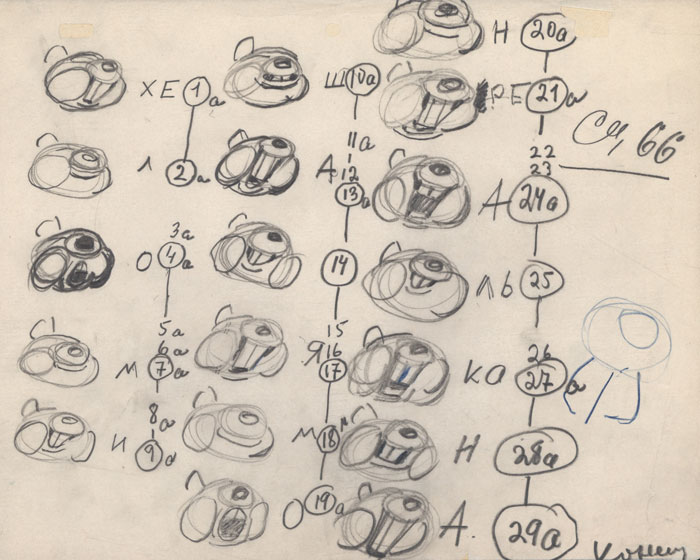 ХЕ 1а
Л 2а
3а
О 4а
5а
6а
М 7а
8а
И 9а
Ш 10а
11а
А 12
13а
14
15
Я 16
17
М 18
О 19а
Н 20а
РЕ 21а
22
23
А 24а
ЛЬ 25
26
КА 27а
Н 28а
А. 29а
Сц 66